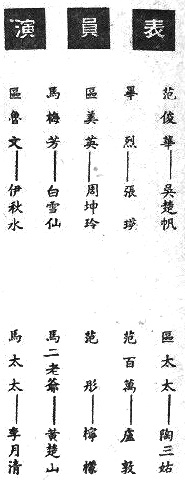 演員表
范俊華——吳楚帆
畢烈——張瑛
區美英——周坤玲
馬梅芳——白雪仙
區魯文——伊秋水
區太太——陶三姑
范百萬——盧敦
范彤——檸檬
馬二老爺——黃楚山
馬太太——李月清